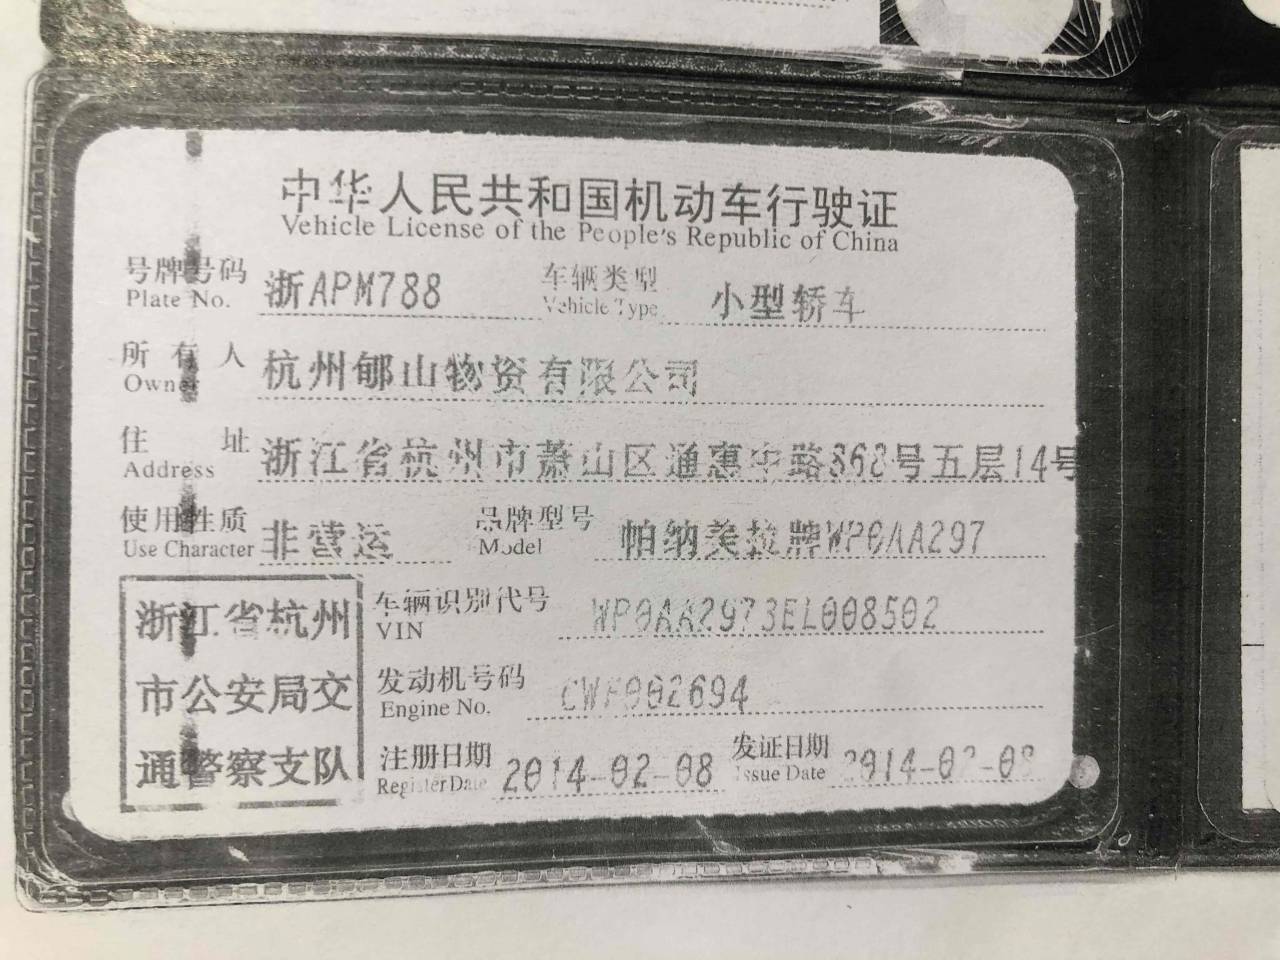 中华人民共和国机动车行驶证
Vehicle License of the People's Republic of China
号牌号码 浙APM788 车辆类型 小型轿车
Plate No. Vehicle Type
所有人 杭州郇山物资有限公司
Owner
住址 浙江省杭州市萧山区通惠中路868号五层14号
Address
使用性质 非营运 品牌型号 帕纳美拉牌WP0AA297
Use Character Model
浙江省杭州
市公安局交
通警察支队
车辆识别代号 WP0AA2973EL008502
VIN
发动机号码 CWF002694
Engine No.
注册日期 2014-02-08 发证日期 2014-02-08
Register Date Issue Date